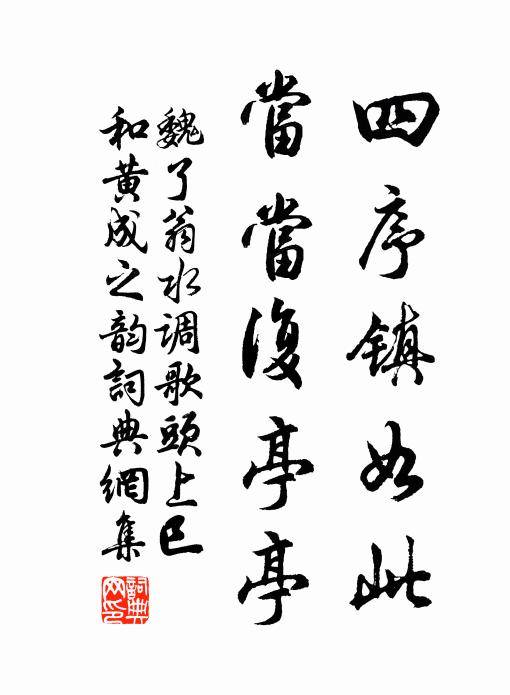 四序镇如此
當當復亭亭
魏了翁水调歌頭上巳
和黄成之韵詞典網集
詞典网印